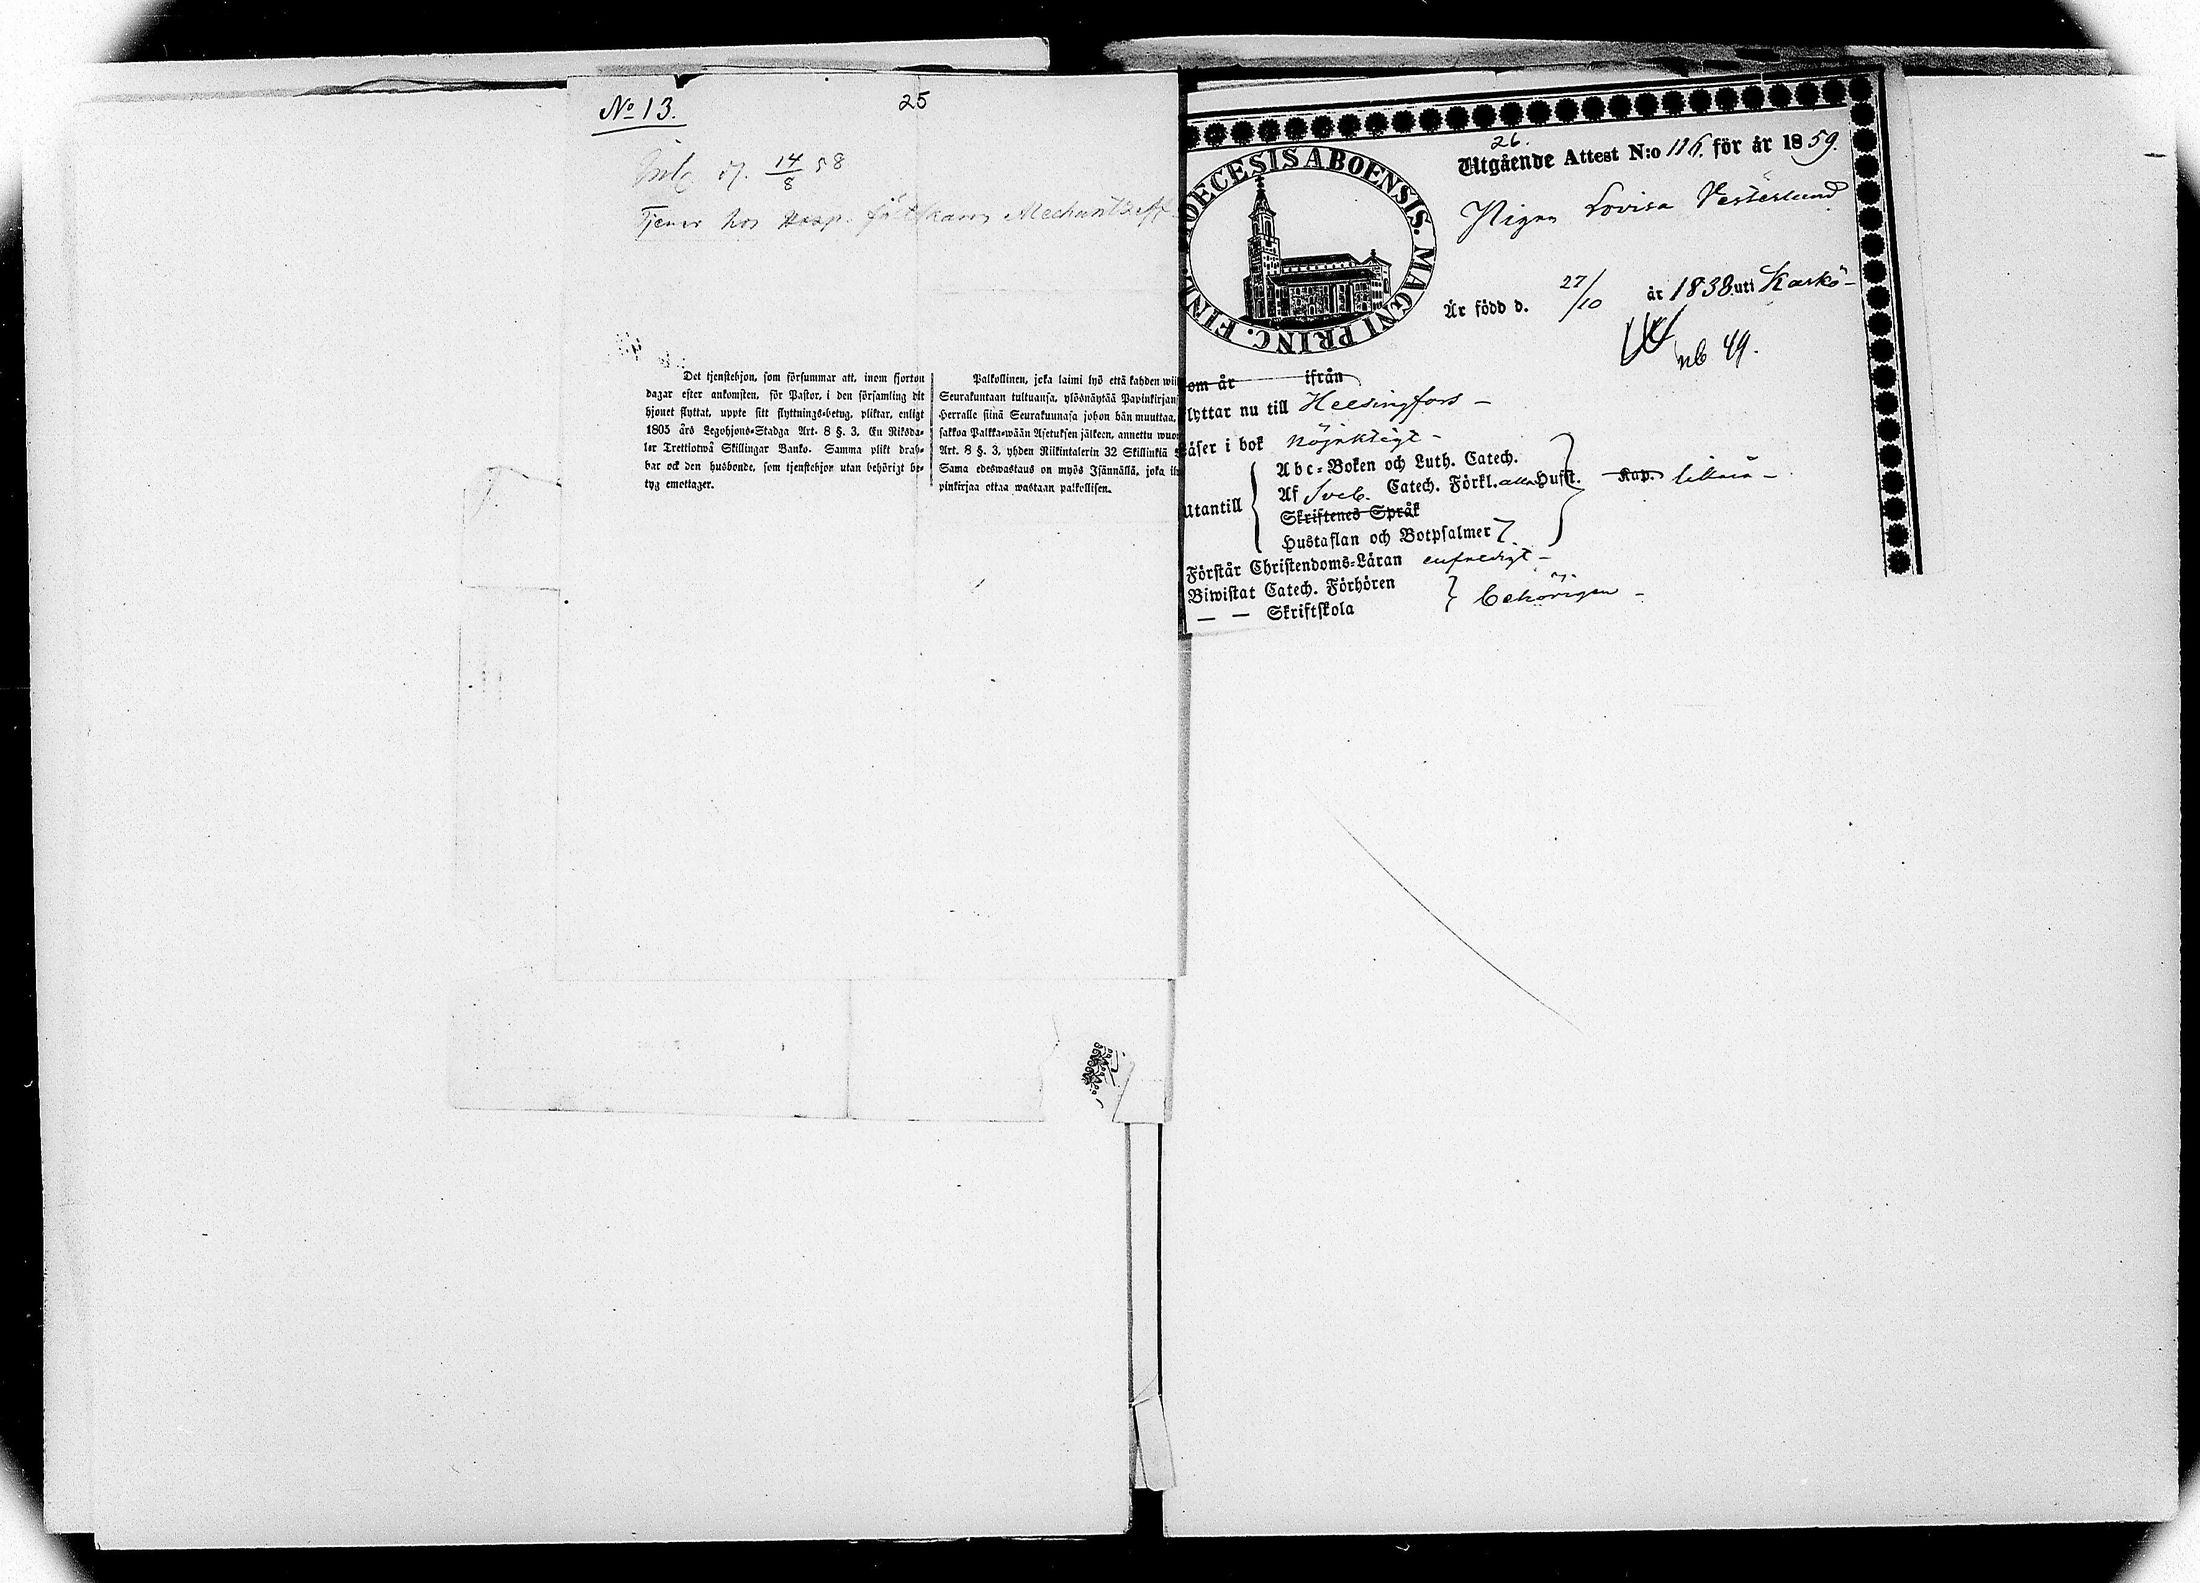 No 13.
25
14/8 58
Tjenar hos Hosp. fältskärn
Det tjenstehjon, som försummar att, inom fjorton
dagar efter ankomsten, för Pastor, i den församling dit
hjonet flyttat, uppte sitt flyttnings-betyg, pliktar, enligt
1805 års Legohjons-Stadga Art. 8 §. 3, En Riksda-
ler Trettiotwå Skillingar Banko. Samma plikt drab-
bar ock den husbonde, som tjenstehjon utan behörigt be-
tyg emottager.
Palkollinen, joka laimi lyö että kahden wii
Seurakuntaan tultuansa, ylösnäytää Papinkirjans
Herralle siinä Seurakunnasa johon hän muuttaa,
sakkoa Palkka-wään Asetuksen jälkeen, annettu wuon
Art. 8 §. 3, yhden Riikintalerin 32 Skillinkiä
Sama edeswastaus on myös Isännällä, joka il
pinkirjaa ottaa wastaan palkollisen.
DIOECESIS ABOENSIS. MAGNI PRINC. FINL.
26.
Utgående Attest N:o 116. för år 1859.
Pigan Lovisa Vesterlund
Är född d. 27/10 år 1838 uti Karkö
nb 49.
om år ifrån
flyttar nu till Helsingfors –
Läser i bok nöjaktigt –
Utantill
Abc-Boken och Luth. Catech.
Af Sveb. Catech. Förkl. allan Hufst. Kap.
Skriftenes Språk
Hustaflan och Botpsalmer 7.
Förstår Christendoms-Läran enfaldigt –
Biwistat Catech. Förhören
— — Skriftskola
behörigen –